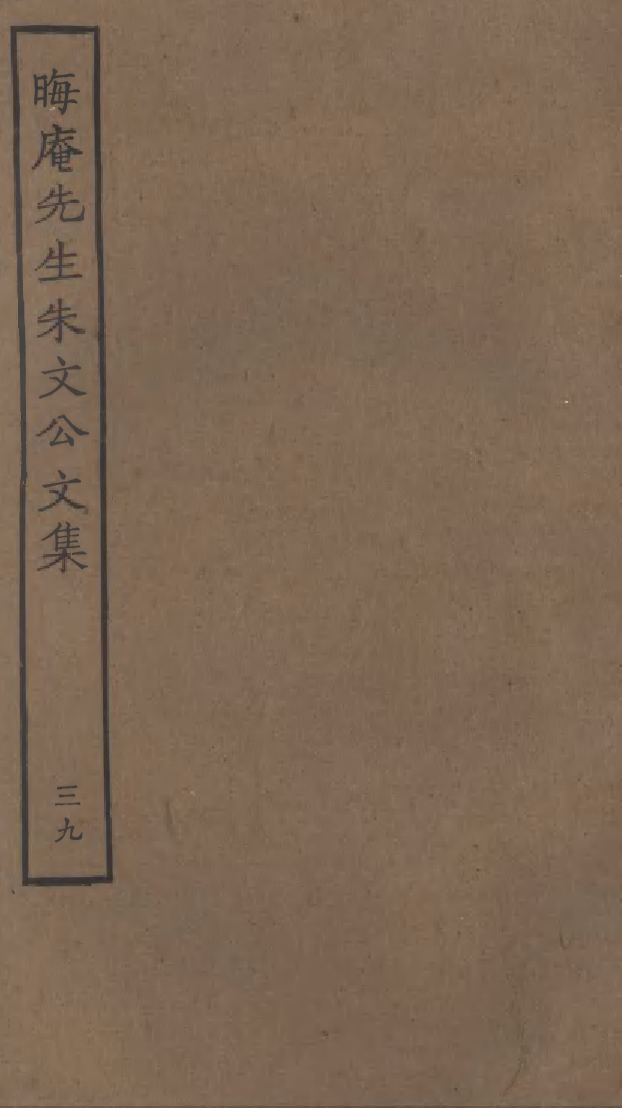 晦庵先生朱文公文集
三九